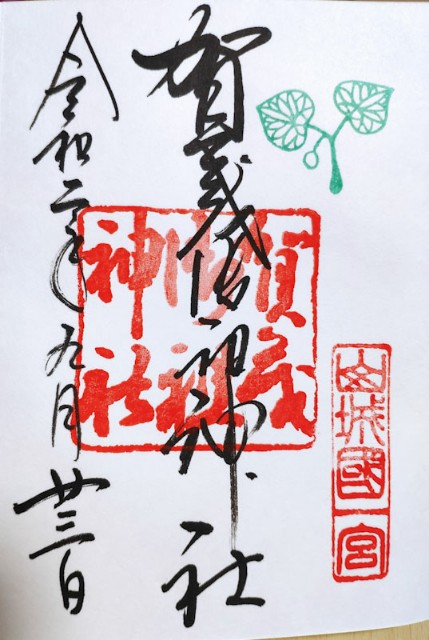 山城國一宮
賀茂御祖神社
賀茂
御祖
神社
令和二年九月廿三日